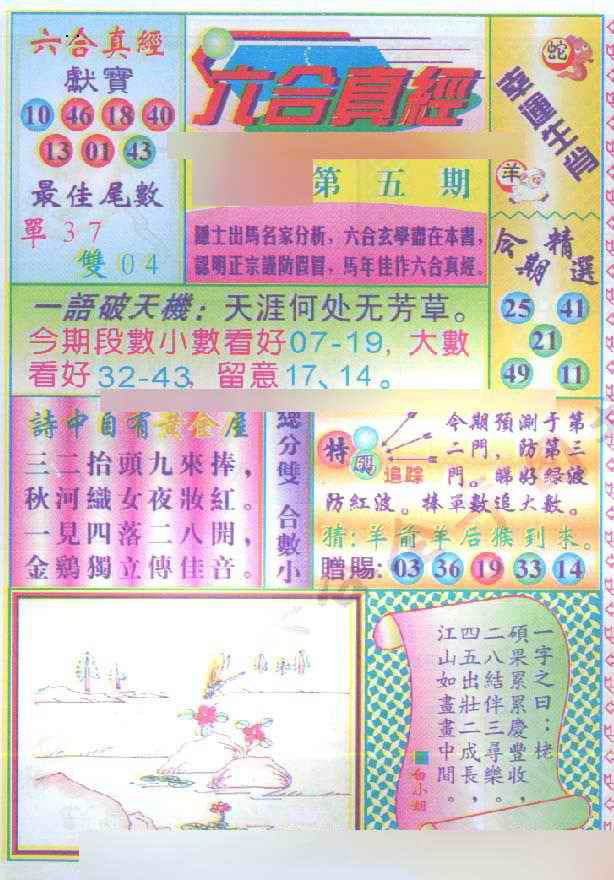 六合真經
獻寶
10 46 18 40
13 01 43
最佳尾數
單 37
雙 04
六合真經
第五期
隱士出馬名家分析，六合玄學盡在本書，
認明正宗謹防假冒，馬年佳作六合真經。
蛇
幸運生肖
羊
今期精選
25 41
21
49 11
一語破天機：天涯何处无芳草。
今期段數小數看好07-19，大數
看好32-43，留意17、14。
詩中自有黃金屋
三二抬頭九來捧，
秋河織女夜妝紅。
一見四落二八開，
金鷄獨立傳佳音。
總分雙 合數小
特碼
追踪
今期預測于第
二門，防第三
門。睇好绿波
防紅波。捧單數追大數。
猜：羊前羊后猴到来。
贈賜：03 36 19 33 14
一字之曰：栳
碩果累累慶豐收，
二八結伴三尋樂。
四五出壯二成長，
江山如畫畫中間。
白小姐